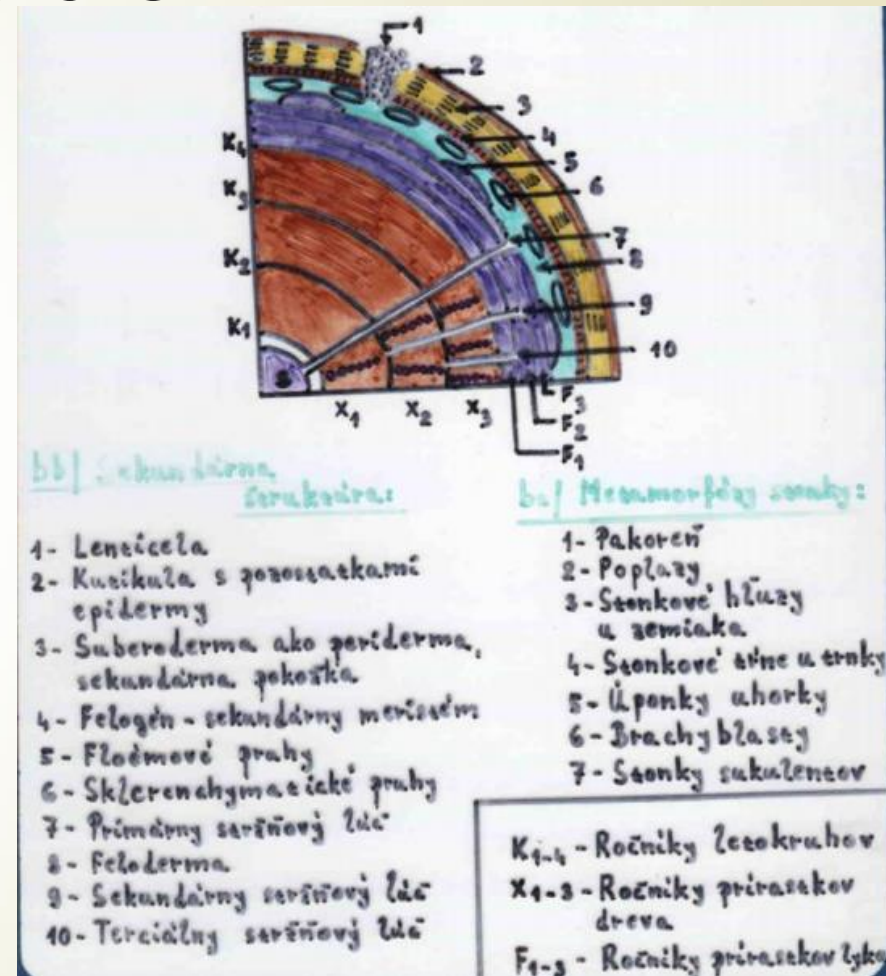 1
2
3
4
5
6
7
8
9
10
K4
K3
K2
K1
S
X1
X2
X3
F3
F2
F1
bb/ Sekundárna
štruktúra:
1- Lenticela
2- Kutikula s pozostatkami
epidermy
3- Suberoderma ako periderma,
sekundárna pokožka
4- Felogén - sekundárny meristém
5- Floémové pruhy
6- Sklerenchymatické pruhy
7- Primárny stržňový lúč
8- Feloderma
9- Sekundárny stržňový lúč
10- Terciálny stržňový lúč
bc/ Metamorfózy stonky:
1- Pakoreň
2- Poplazy
3- Stonkové hľuzy
u zemiaka
4- Stonkové tŕne u trnky
5- Úponky uhorky
6- Brachyblasty
7- Stonky sukulentov
K1-4 - Ročníky letokruhov
X1-3 - Ročníky prírastkov
dreva
F1-3 - Ročníky prírastkov lyka